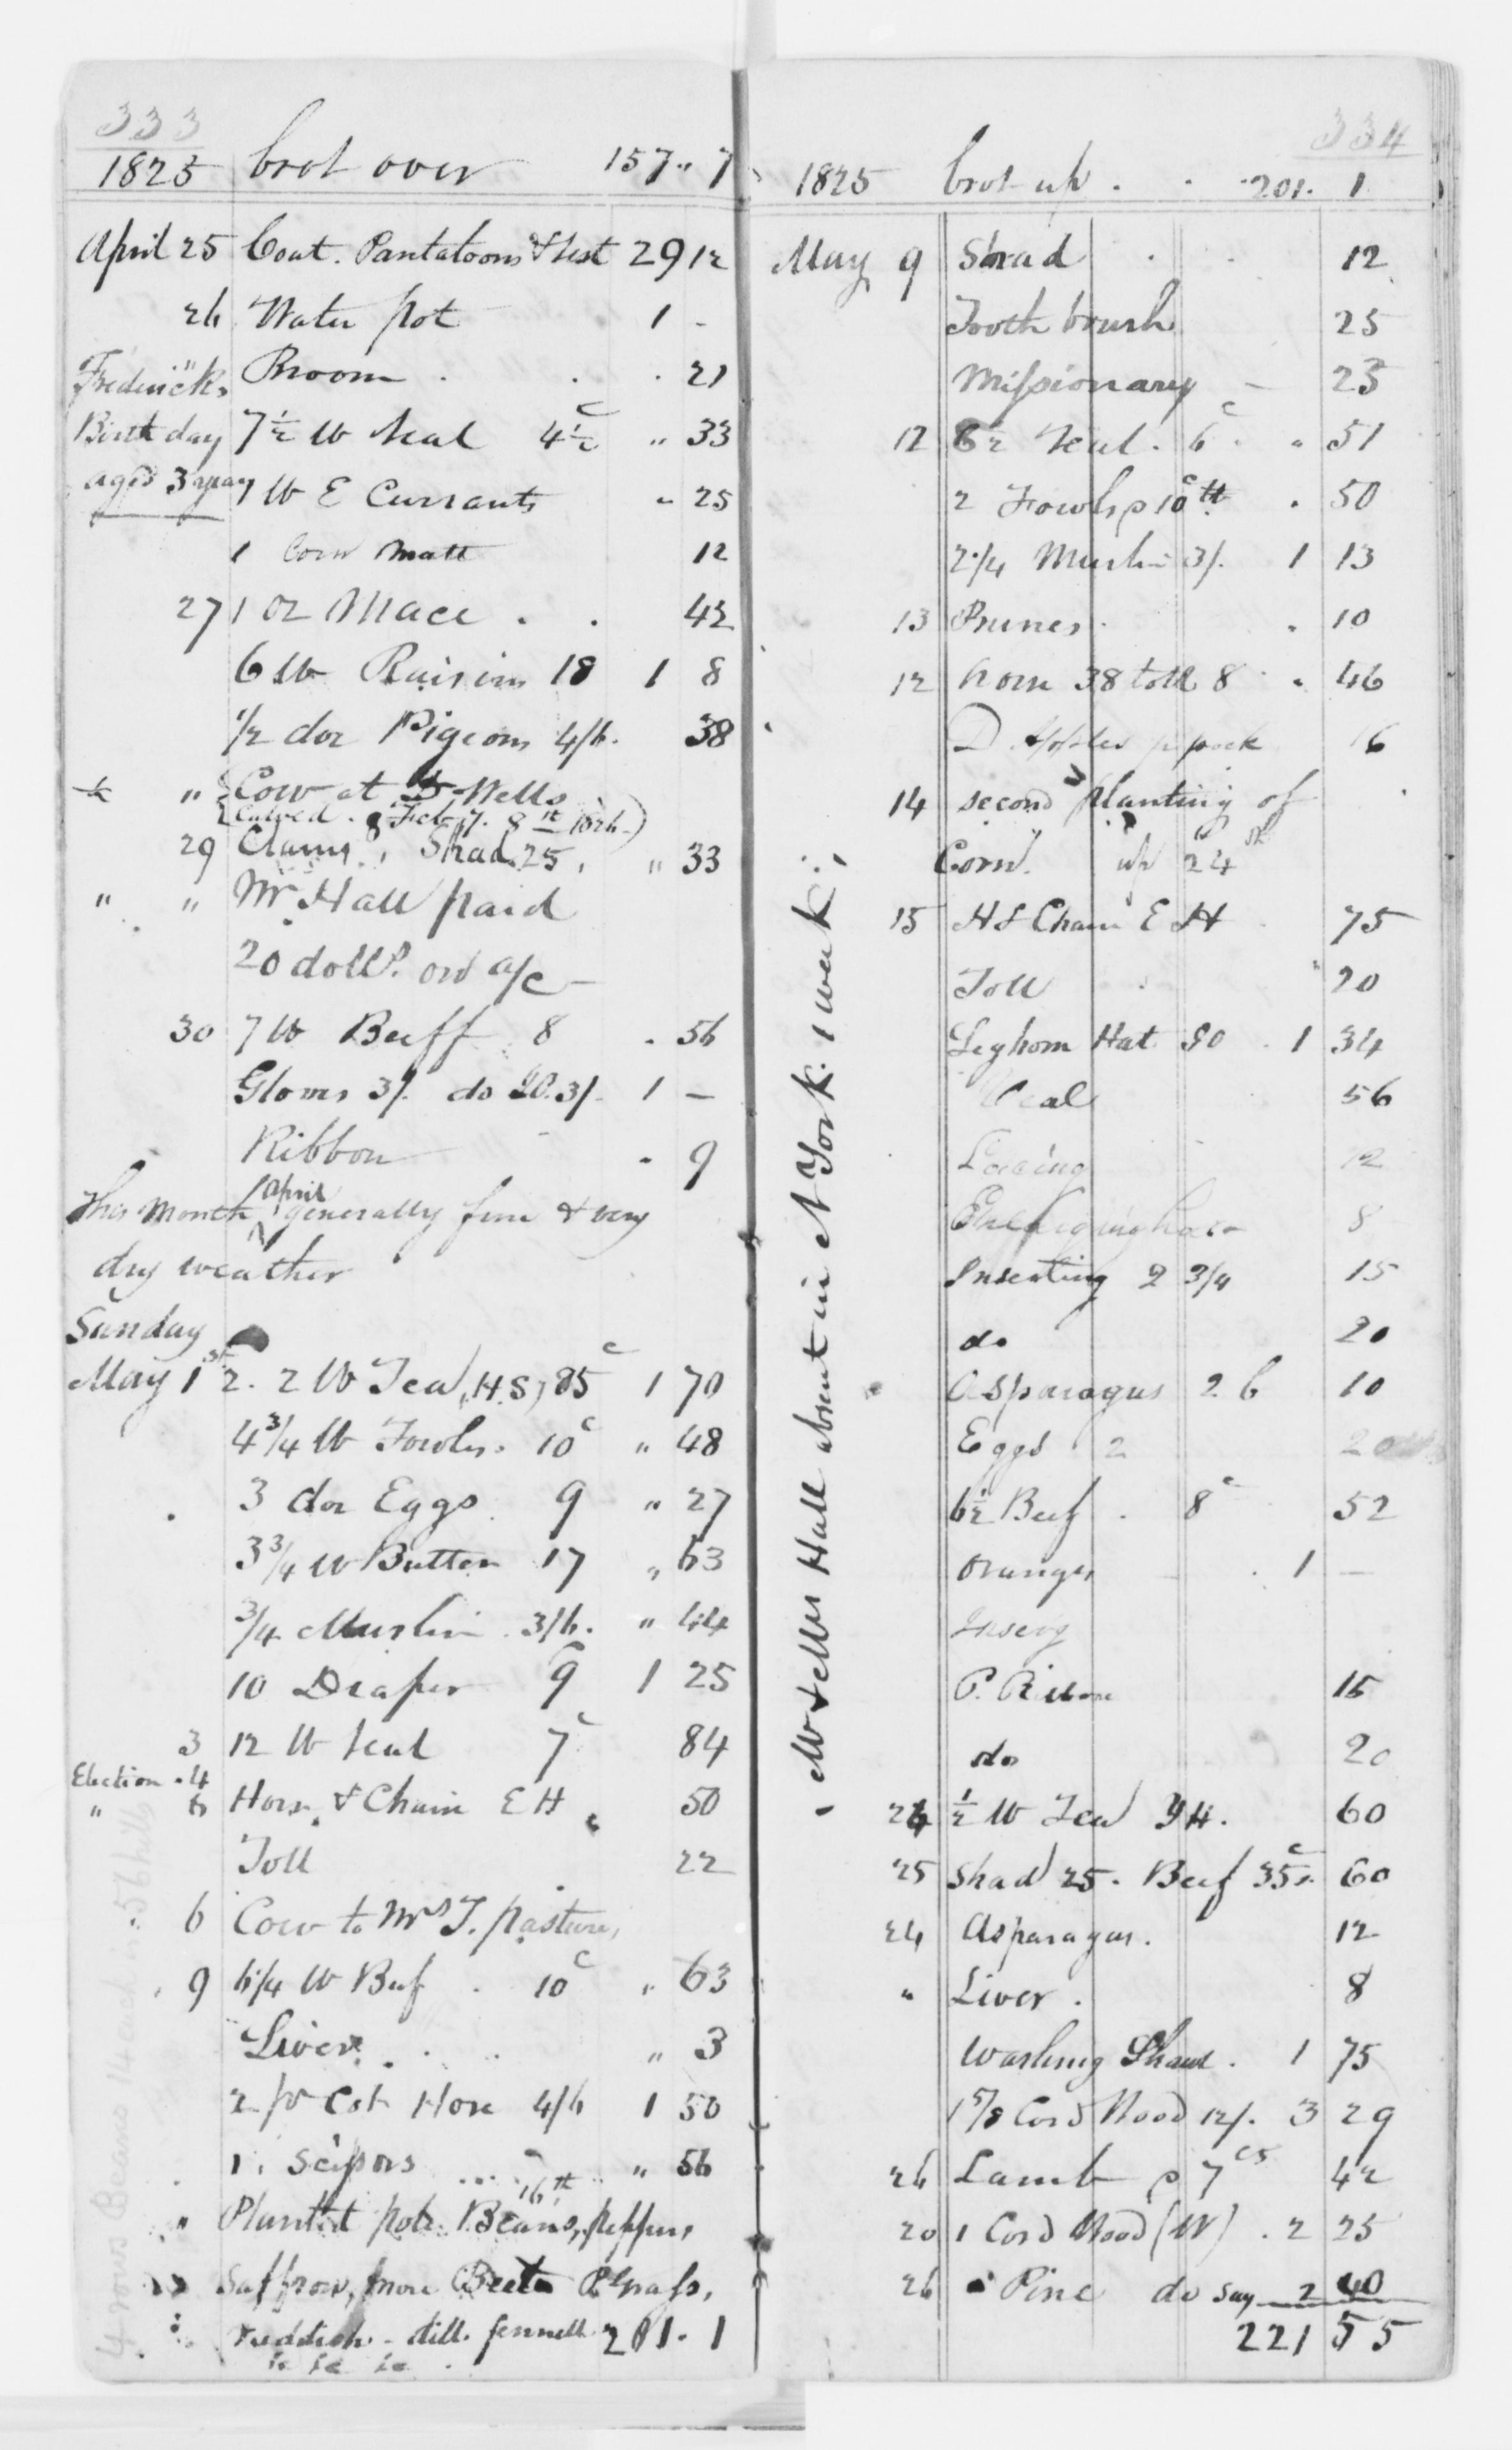 333
1825 brot over 157 .. 7
April 25 Coat. Pantaloons & Vest 29 12
26 Water pot 1 -
" Broom . . . 21
Fredericks
Birth day
aged 3 years
7½ lb Veal 4½ c " 33
1 lb E Currants " 25
1 Corn Matt 12
27 1 oz Mace . . 42
6 lb Raisins 18 1 8
½ doz Pigeons 4/6. 38
" Cow at Wells
Calved . Feb 7. 8
29 Clams 8, Shad 25, " 33
" " Mr Hall paid
20 dolls. on a/c -
30 7 lb Beeff 8 . 56
Gloves 3/. do 3/. 1 -
Ribbon - . 9
This Month April generally fine & very
dry weather
Sunday
May 1st 2. 2 lb Tea, (H.S) 85 c 1 70
4 3/4 lb Fowls. 10 c " 48
3 doz Eggs 9 " 27
3 3/4 lb Butter 17 " 63
3/4 Muslin 3/6. " 44
10 Diaper 9 1 25
3 12 lb Veal 7 c 84
Election . 4
" 6 Horse & Chair E H 50
Toll 22
6 Cow to Mrs T. pasture,
9 6 1/4 lb Beef . 10 c " 63
Liver . . . " 3
2 pr Cot Hose 4/6 1 50
1 . Scissors " 56
16th
" Planted pole Beans, peppers,
Saffron, more Beets P. Grass,
reddish - dill. fennell 201 . 1
4 rows Beans 14 each in 56 hills
334
1825 brot up . . 201. 1
May 9 Shad . . 12
Tooth brush 25
Missionary - 25
12 8½ Veal . 6 c . " 51
2 Fowls p 10 c lb . 50
2 1/4 Muslin 3/. 1 13
13 Prunes . . 10
12 horse 38 toll 8 . 46
D Apples p peck 16
14 second planting of
Corn. up 24th
15 H & Chair E H 75
Toll 20
Leghorn Hat 1 34
Veal 56
Lacing 12
8
Inserting 2 3/4 15
do 20
Asparagus 2 6 10
Eggs 2 20
6½ Beef . 8 c 52
Oranges - . 1 -
P. Ribbon 16
do 20
24 ½ lb Tea Y H. 60
25 Shad 25. Beef 35 c. 60
24 Asparagus. 12
" Liver . 8
Washing Shawl . 1 75
1 5/8 Cord Wood 12/. 3 29
26 Lamb p 7 cs 42
20 1 Cord Wood (W) . 2 25
26 Pine do say 2 40
221 55
Mr & Mrs Hall absent in N York. 1 week.